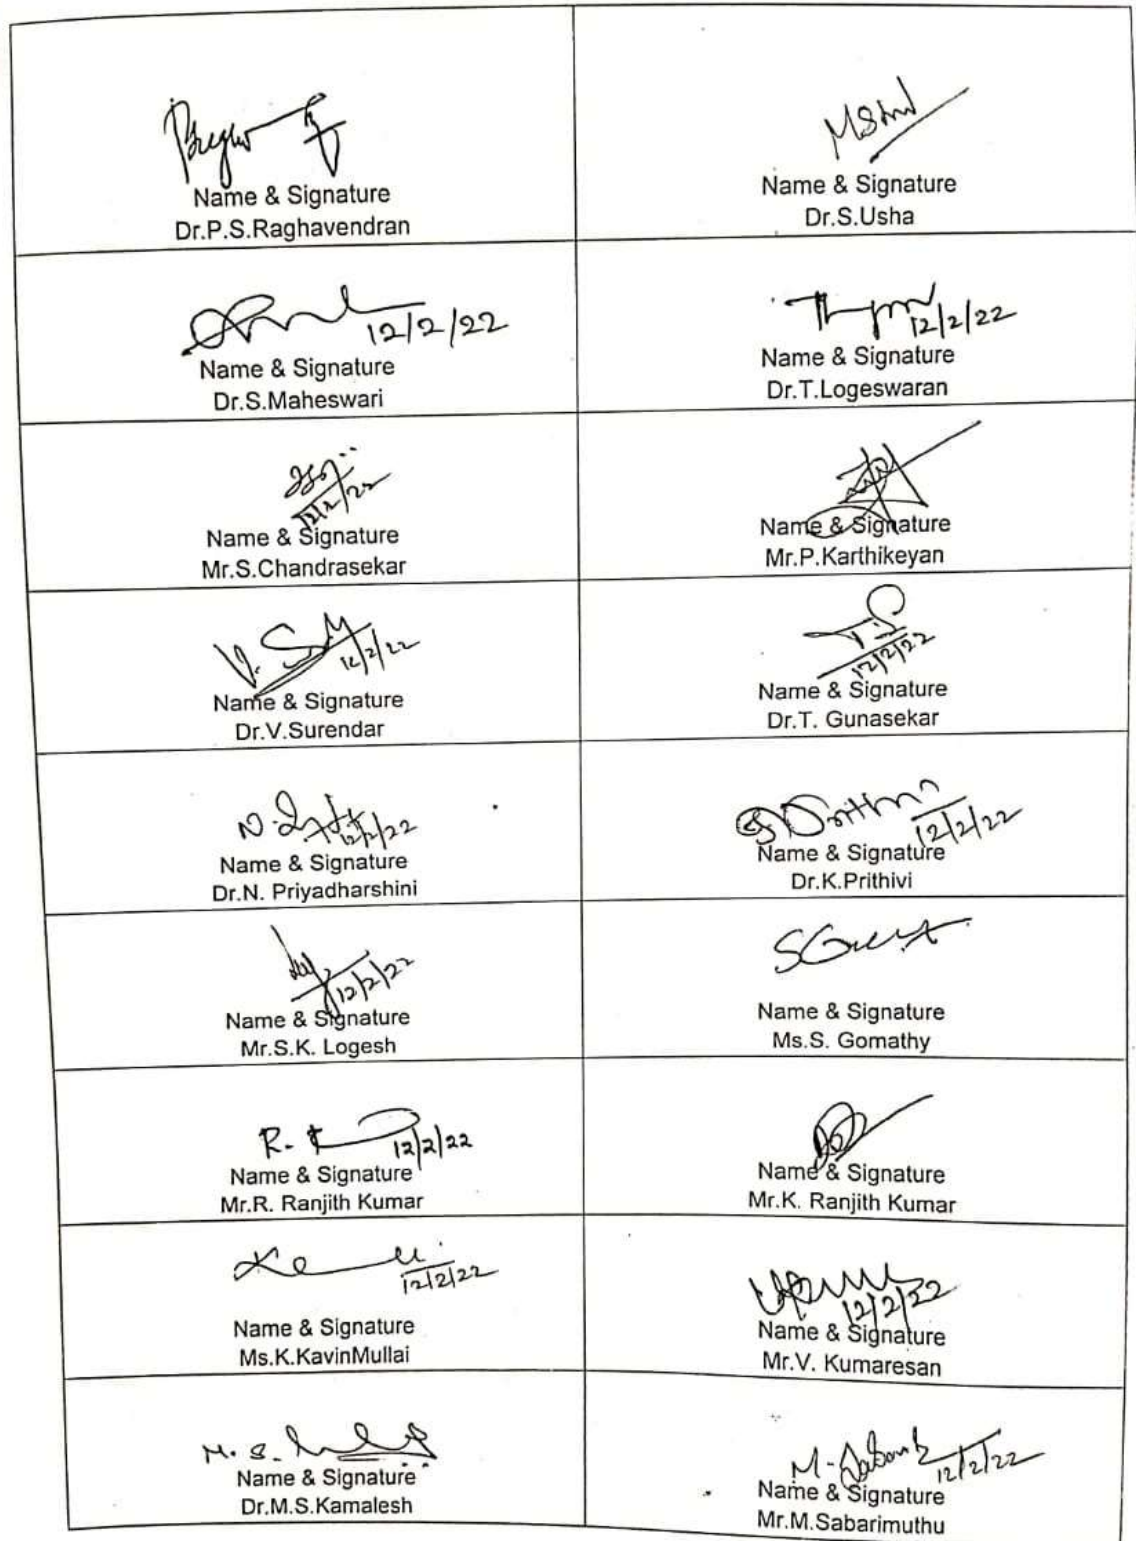 Name & Signature
Dr.P.S.Raghavendran
Name & Signature
Dr.S.Usha
12/2/22
Name & Signature
Dr.S.Maheswari
12/2/22
Name & Signature
Dr.T.Logeswaran
12/2/22
Name & Signature
Mr.S.Chandrasekar
Name & Signature
Mr.P.Karthikeyan
12/2/22
Name & Signature
Dr.V.Surendar
12/2/22
Name & Signature
Dr.T. Gunasekar
12/2/22
Name & Signature
Dr.N. Priyadharshini
12/2/22
Name & Signature
Dr.K.Prithivi
12/2/22
Name & Signature
Mr.S.K. Logesh
Name & Signature
Ms.S. Gomathy
R.
12/2/22
Name & Signature
Mr.R. Ranjith Kumar
Name & Signature
Mr.K. Ranjith Kumar
12/2/22
Name & Signature
Ms.K.KavinMullai
12/2/22
Name & Signature
Mr.V. Kumaresan
M.S.
Name & Signature
Dr.M.S.Kamalesh
12/2/22
Name & Signature
Mr.M.Sabarimuthu